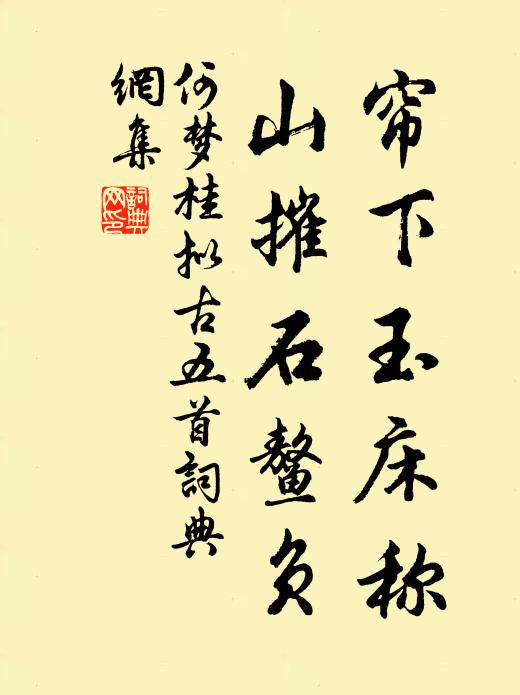 帘下玉床称
山摧石鳌负
何梦桂拟古五首詞典
網集
詞典網印